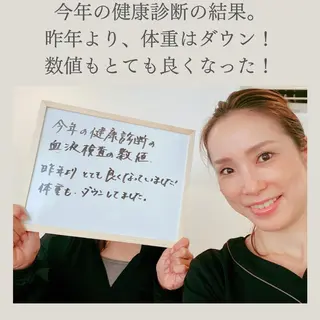 今年の健康診断の結果。
昨年より、体重はダウン！
数値もとても良くなった！
今年の健康診断の
血液検査の数値
昨年より とても良くなっていました！
体重も、ダウンしてました。